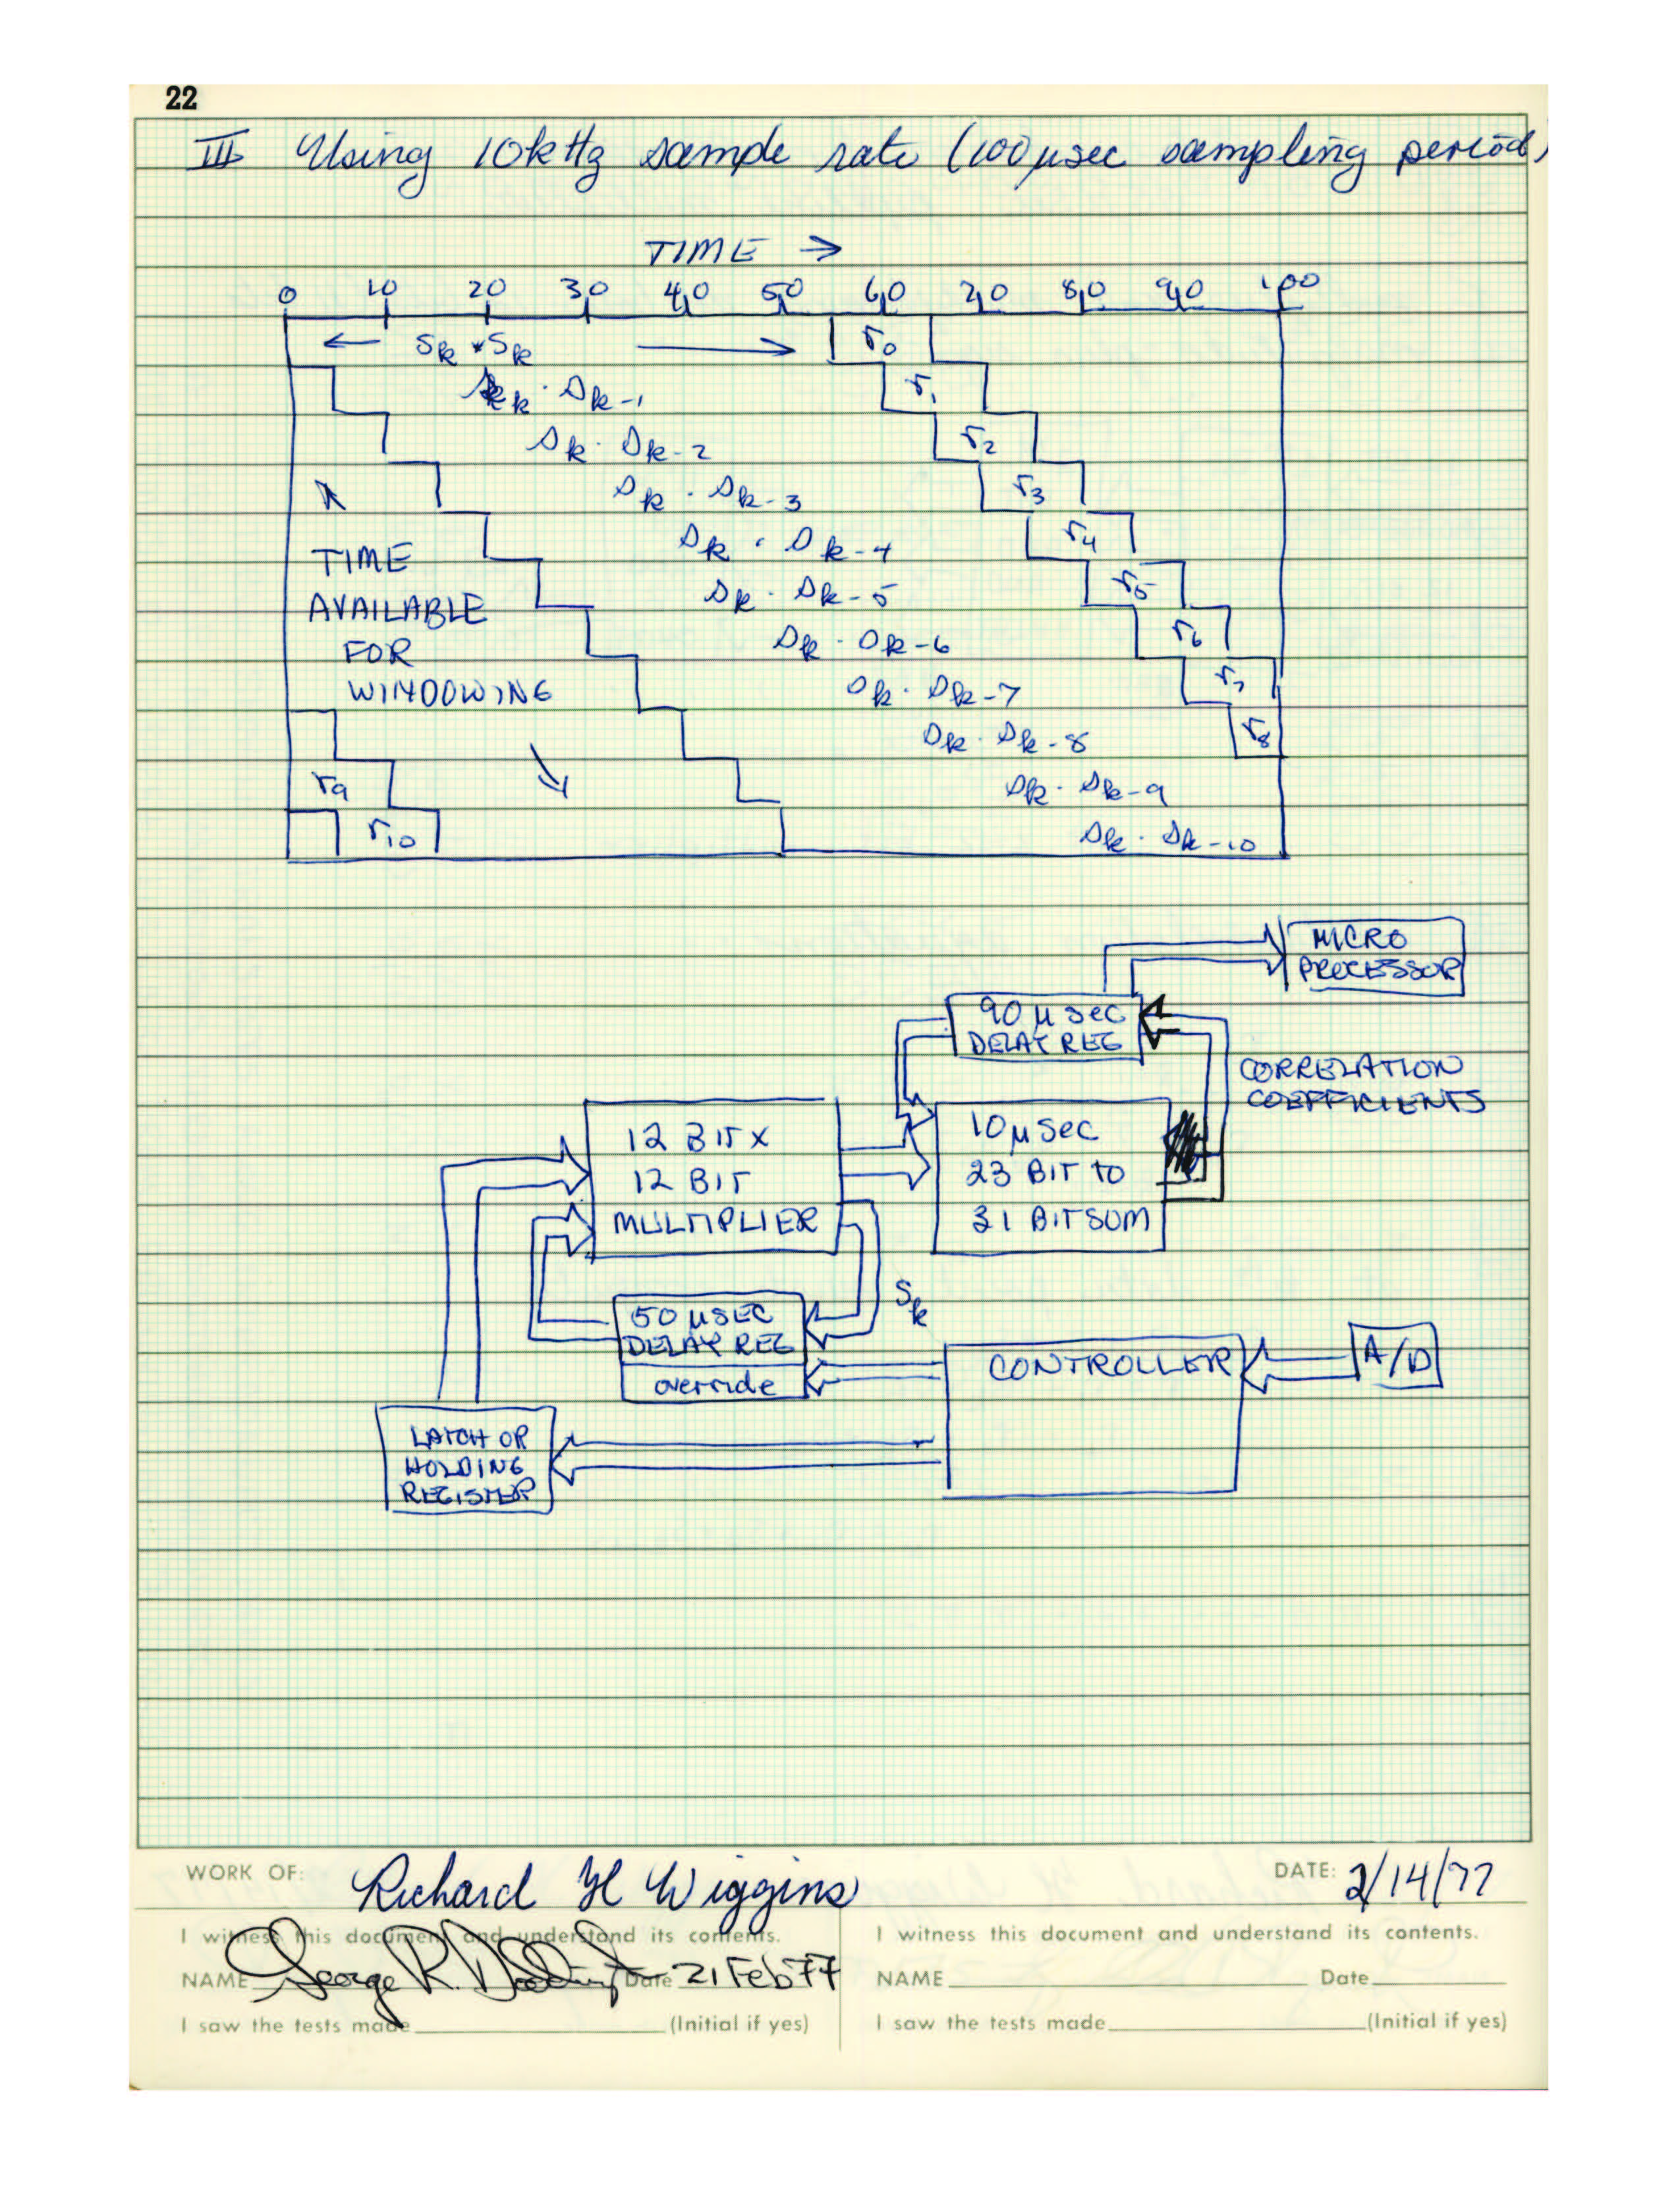 22
III Using 10kHz sample rate (100 µsec sampling period)
TIME →
0 10 20 30 40 50 60 70 80 90 100
← Sk * Sk → r0
Sk · Sk-1 r1
Sk · Sk-2 r2
Sk · Sk-3 r3
Sk · Sk-4 r4
TIME
AVAILABLE
FOR
WINDOWING
Sk · Sk-5 r5
Sk · Sk-6 r6
Sk · Sk-7 r7
Sk · Sk-8 r8
r9 Sk · Sk-9
r10 Sk · Sk-10
MICRO
PROCESSOR
90 µ sec
DELAY REG
CORRELATION
COEFFICIENTS
12 BIT X
12 BIT
MULTIPLIER
10 µ Sec
23 BIT TO
31 BIT SUM
Sk
50 µSEC
DELAY REG
override
CONTROLLER
A/D
LATCH OR
HOLDING
REGISTER
WORK OF: Richard H Wiggins DATE: 2/14/77
I witness this document and understand its contents.
NAME George R. Doddington Date 21 Feb 77
I saw the tests made (Initial if yes)
I witness this document and understand its contents.
NAME Date
I saw the tests made (Initial if yes)